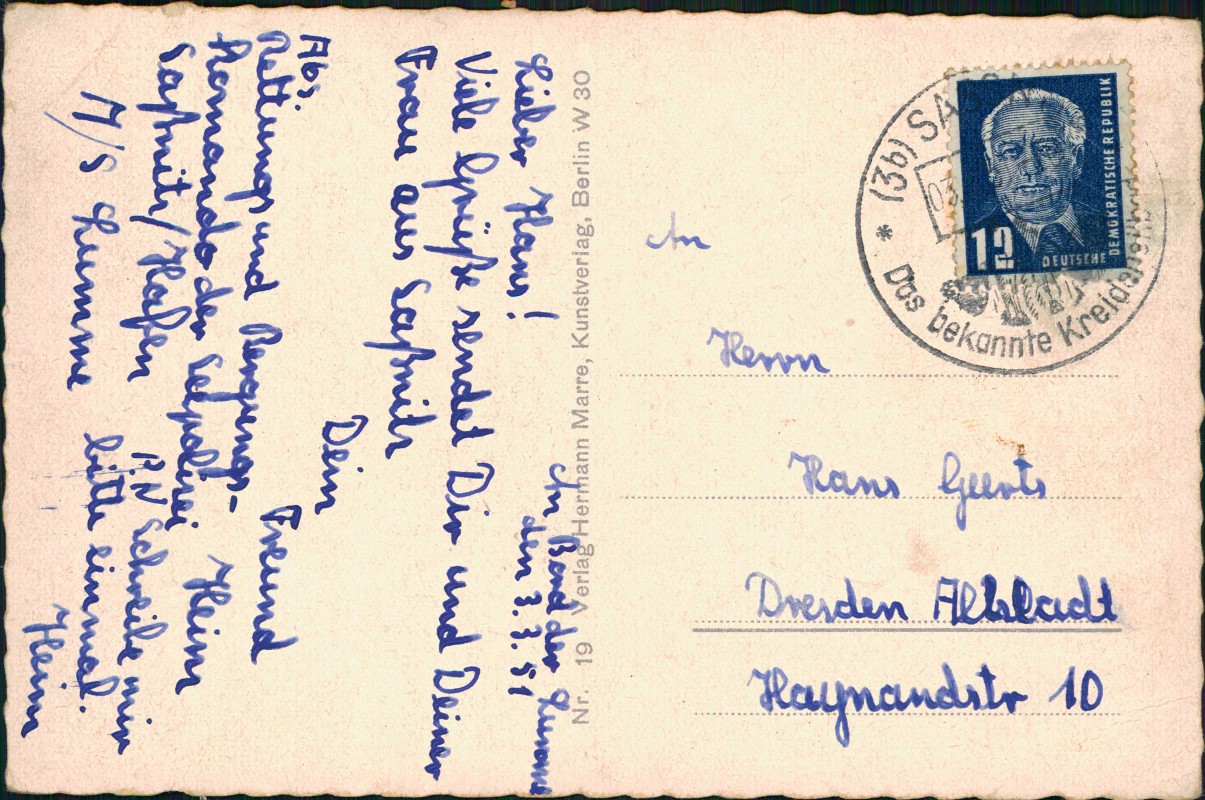 An Bord der Lumme
den 3.7.51
Lieber Hans!
Viele Grüße sendet Dir und Deiner
Frau aus Saßnitz
Dein
Freund
Heinr
Abs.
Rettungs und Bergungs-
Komando der Seepolizei
Saßnitz/Hafen
M/S Lumme
P.N Schreibe mir
bitte einmal.
Heinr
Nr. 19 Verlag Hermann Marre, Kunstverlag, Berlin W 30
An
Herrn
Hans Geerts
Dresden Altstadt
Haynandstr 10
* (3b) SASS
Das bekannte Kreide
12
DEUTSCHE DEMOKRATISCHE REPUBLIK